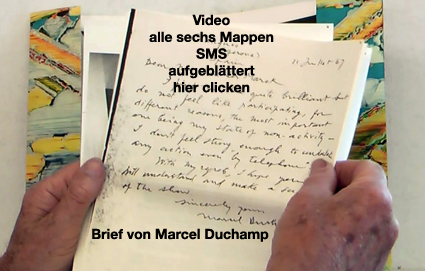 Video
alle sechs Mappen
SMS
aufgeblättert
hier clicken
11 Juillet 67
Dear
quite brilliant but
do not feel like participating, for
different reasons, the most important
one being my state of non-activity –
I don't feel strong enough to
any action even by telephone
With my regret, I hope you
will understand and make a
of the show.
sincerely yours
Marcel
Brief von Marcel Duchamp